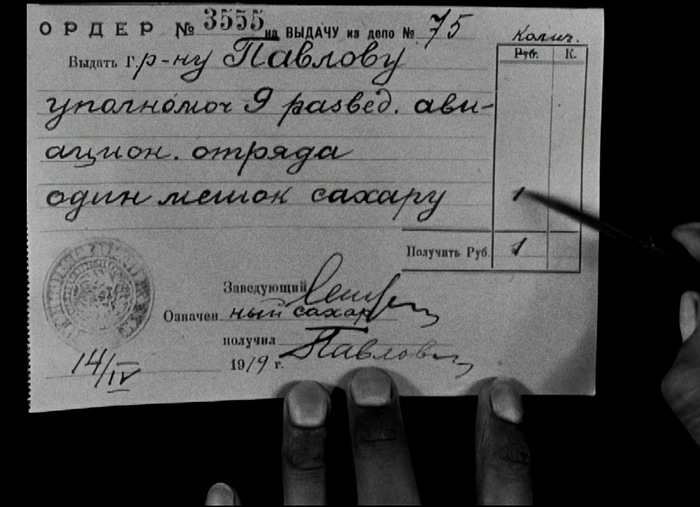 ОРДЕР № 3555 на ВЫДАЧУ из депо № 75
Колич.
Руб. К.
Выдать Г. р-ну Павлову
уполномоч 9 развед. ави-
ацион. отряда
один мешок сахару 1
Получить Руб. 1
Заведующий
Означен ный сахар
получил Павлов
14/IV 1919 г.